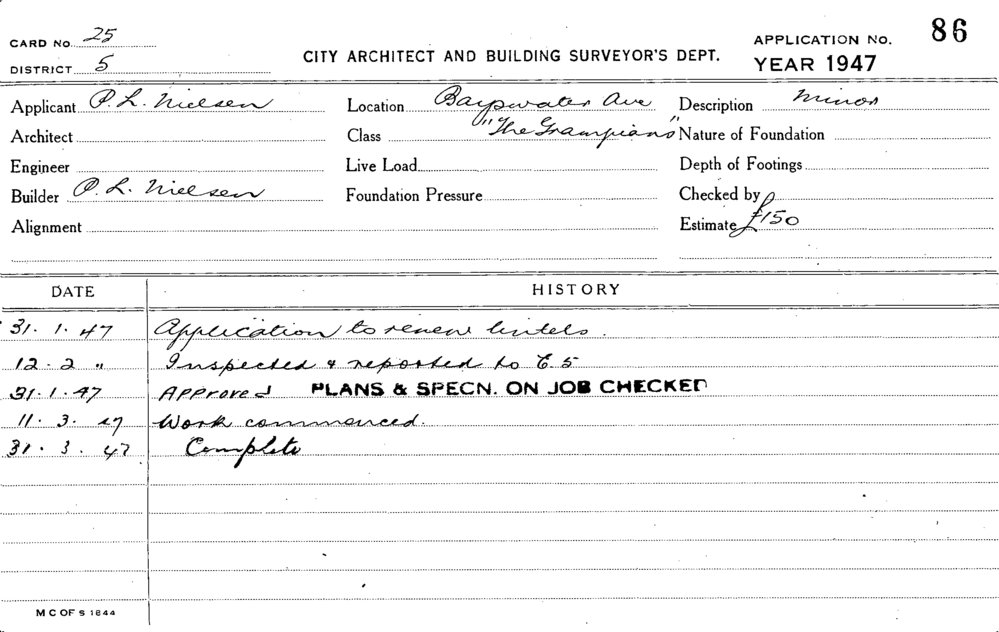 CARD No. 25
DISTRICT 5
CITY ARCHITECT AND BUILDING SURVEYOR'S DEPT.
APPLICATION No. 86
YEAR 1947
Applicant P. L. Nielsen Location Bayswater Ave Description Minor
Architect Class "The Grampians" Nature of Foundation
Engineer Live Load Depth of Footings
Builder P. L. Nielsen Foundation Pressure Checked by
Alignment Estimate £150
DATE HISTORY
31. 1. 47 Application to renew lintels.
12. 2 " Inspected & reported to C. 5
31. 1. 47 Approved PLANS & SPECN. ON JOB CHECKED
11. 3. 47 Work commenced.
31. 3. 47 Complete
M C OF S 1844